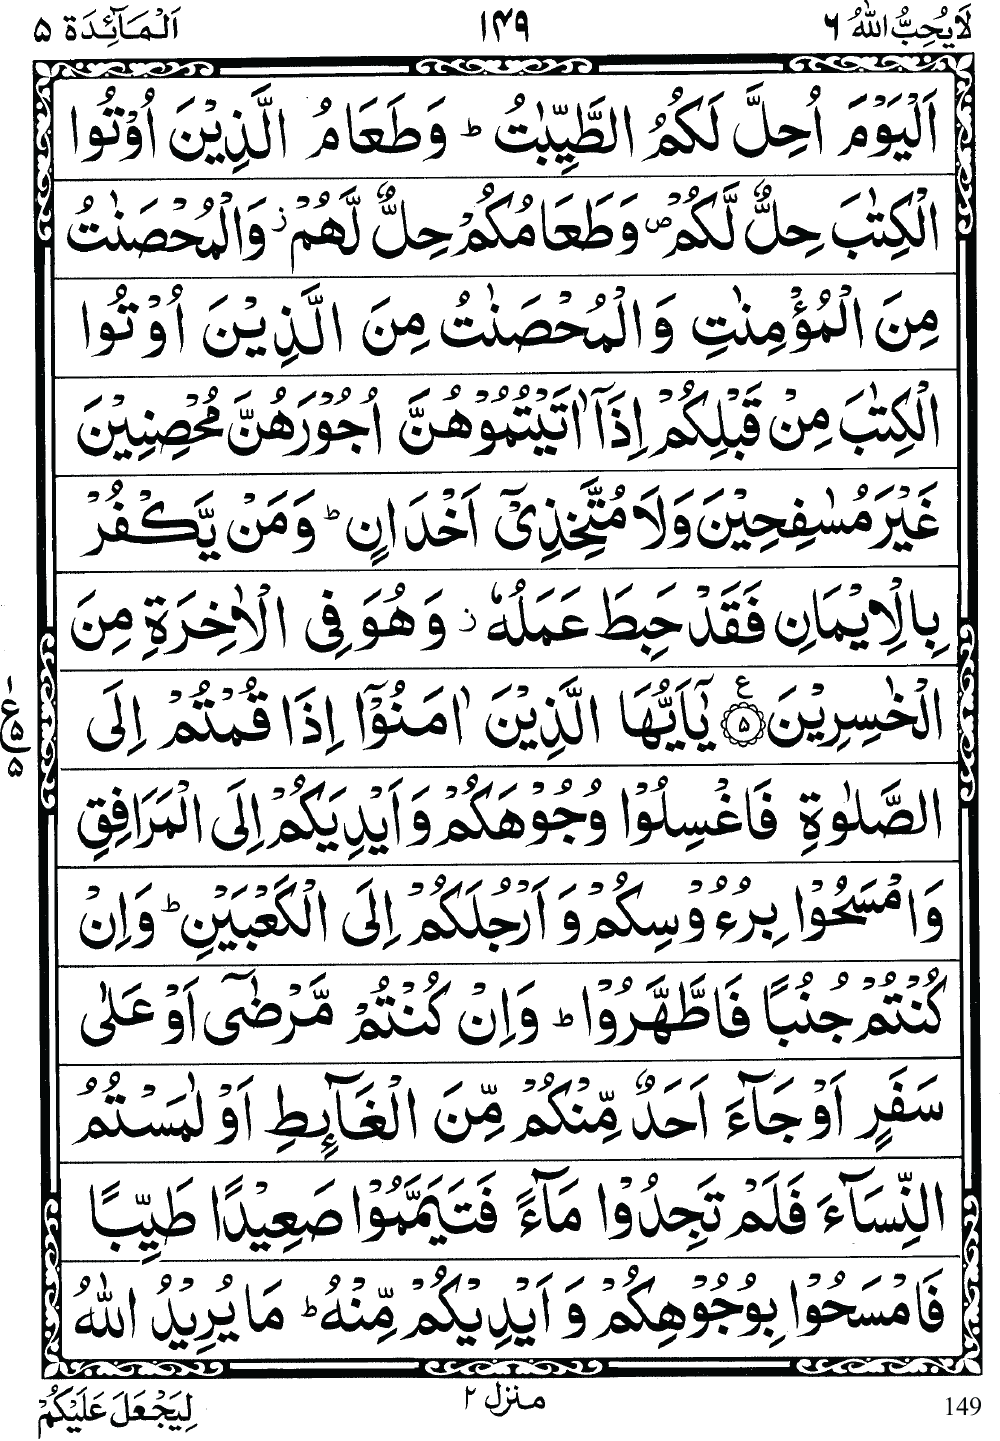 لَا يُحِبُّ اللهُ ٦ ١٤٩ اَلْمَآئِدَة ٥
اَلْيَوْمَ اُحِلَّ لَكُمُ الطَّيِّبٰتُ ؕ وَطَعَامُ الَّذِيْنَ اُوْتُوا
الْكِتٰبَ حِلٌّ لَّكُمْ ۪ وَطَعَامُكُمْ حِلٌّ لَّهُمْ ؗ وَالْمُحْصَنٰتُ
مِنَ الْمُؤْمِنٰتِ وَالْمُحْصَنٰتُ مِنَ الَّذِيْنَ اُوْتُوا
الْكِتٰبَ مِنْ قَبْلِكُمْ اِذَاۤ اٰتَيْتُمُوْهُنَّ اُجُوْرَهُنَّ مُحْصِنِيْنَ
غَيْرَ مُسٰفِحِيْنَ وَلَا مُتَّخِذِيْۤ اَخْدَانٍ ؕ وَمَنْ يَّكْفُرْ
بِالْاِيْمَانِ فَقَدْ حَبِطَ عَمَلُهٗ ؗ وَهُوَ فِي الْاٰخِرَةِ مِنَ
الْخٰسِرِيْنَ ۝٥ ع يٰۤاَيُّهَا الَّذِيْنَ اٰمَنُوْۤا اِذَا قُمْتُمْ اِلَى
ع ٥ ٥
الصَّلٰوةِ فَاغْسِلُوْا وُجُوْهَكُمْ وَاَيْدِيَكُمْ اِلَى الْمَرَافِقِ
وَامْسَحُوْا بِرُءُوْسِكُمْ وَاَرْجُلَكُمْ اِلَى الْكَعْبَيْنِ ؕ وَاِنْ
كُنْتُمْ جُنُبًا فَاطَّهَّرُوْا ؕ وَاِنْ كُنْتُمْ مَّرْضٰۤى اَوْ عَلٰى
سَفَرٍ اَوْ جَآءَ اَحَدٌ مِّنْكُمْ مِّنَ الْغَآىِٕطِ اَوْ لٰمَسْتُمُ
النِّسَآءَ فَلَمْ تَجِدُوْا مَآءً فَتَيَمَّمُوْا صَعِيْدًا طَيِّبًا
فَامْسَحُوْا بِوُجُوْهِكُمْ وَاَيْدِيْكُمْ مِّنْهُ ؕ مَا يُرِيْدُ اللهُ
149 منزل ٢ لِيَجْعَلَ عَلَيْكُمْ